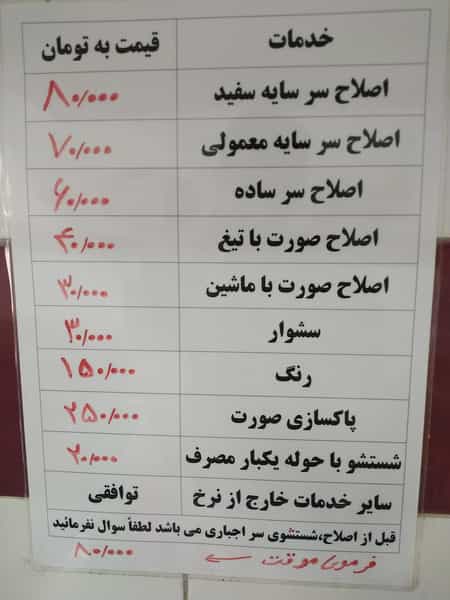 خدمات قیمت به تومان
اصلاح سر سایه سفید ۸۰/۰۰۰
اصلاح سر سایه معمولی ۷۰/۰۰۰
اصلاح سر ساده ۶۰/۰۰۰
اصلاح صورت با تیغ ۴۰/۰۰۰
اصلاح صورت با ماشین ۳۰/۰۰۰
سشوار ۳۰/۰۰۰
رنگ ۱۵۰/۰۰۰
پاکسازی صورت ۲۵۰/۰۰۰
شستشو با حوله یکبار مصرف ۲۰/۰۰۰
سایر خدمات خارج از نرخ توافقی
قبل از اصلاح،شستشوی سر اجباری می باشد لطفاً سوال نفرمائید
فر مو موقت ← ۸۰/۰۰۰